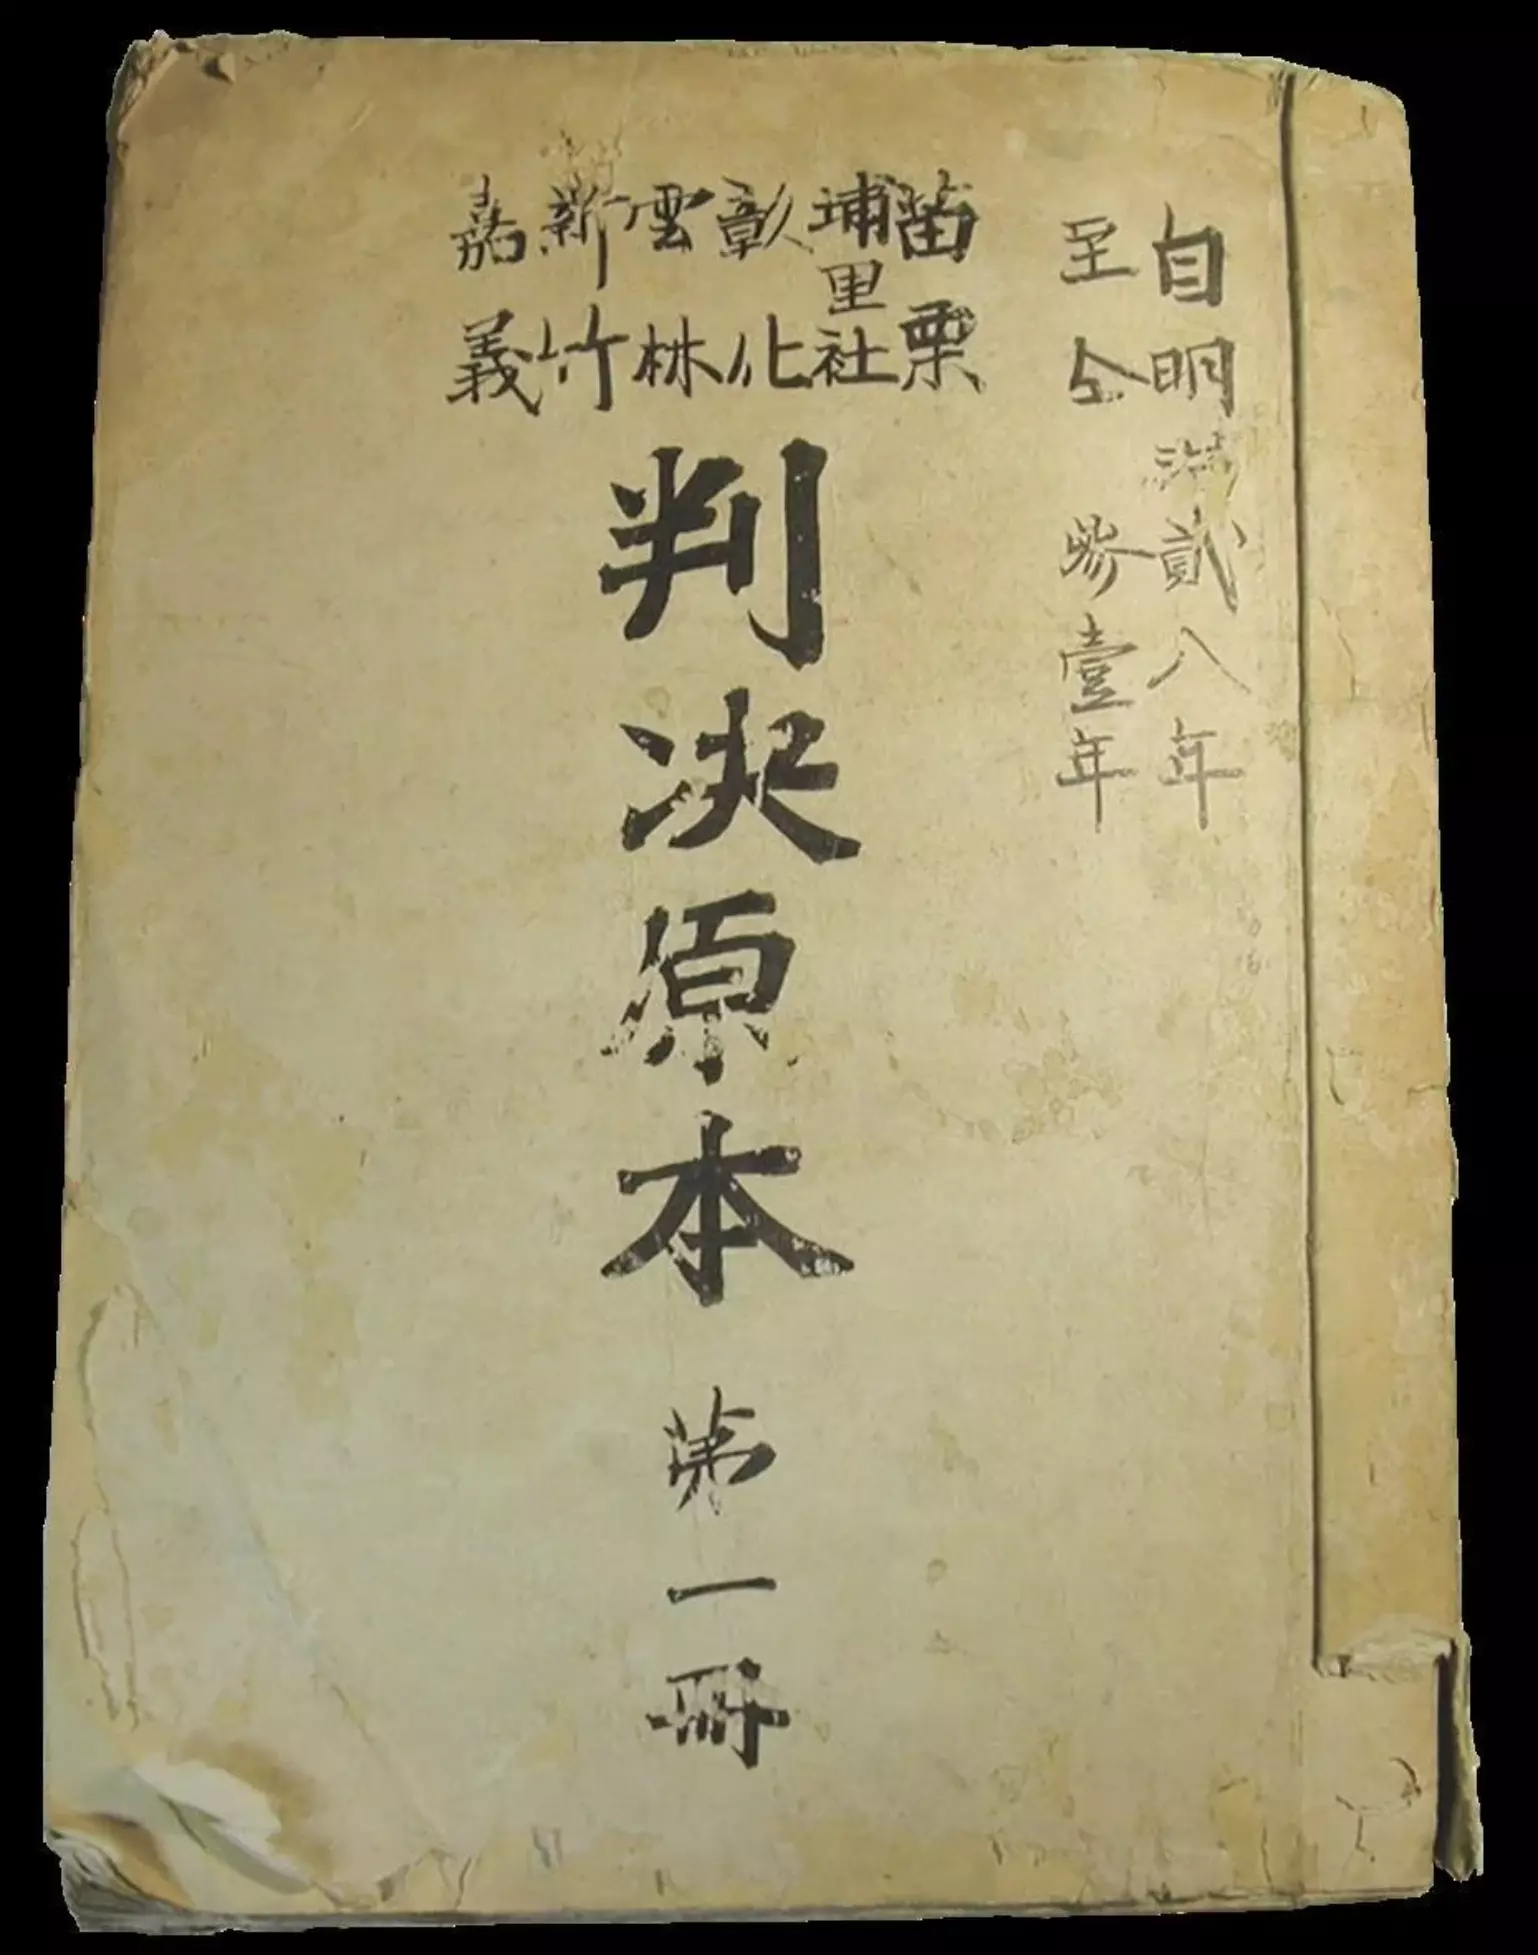 自明治貳八年
至仝 參壹年
苗栗
埔里社
彰化
雲林
新竹
嘉義
判决原本 第一冊